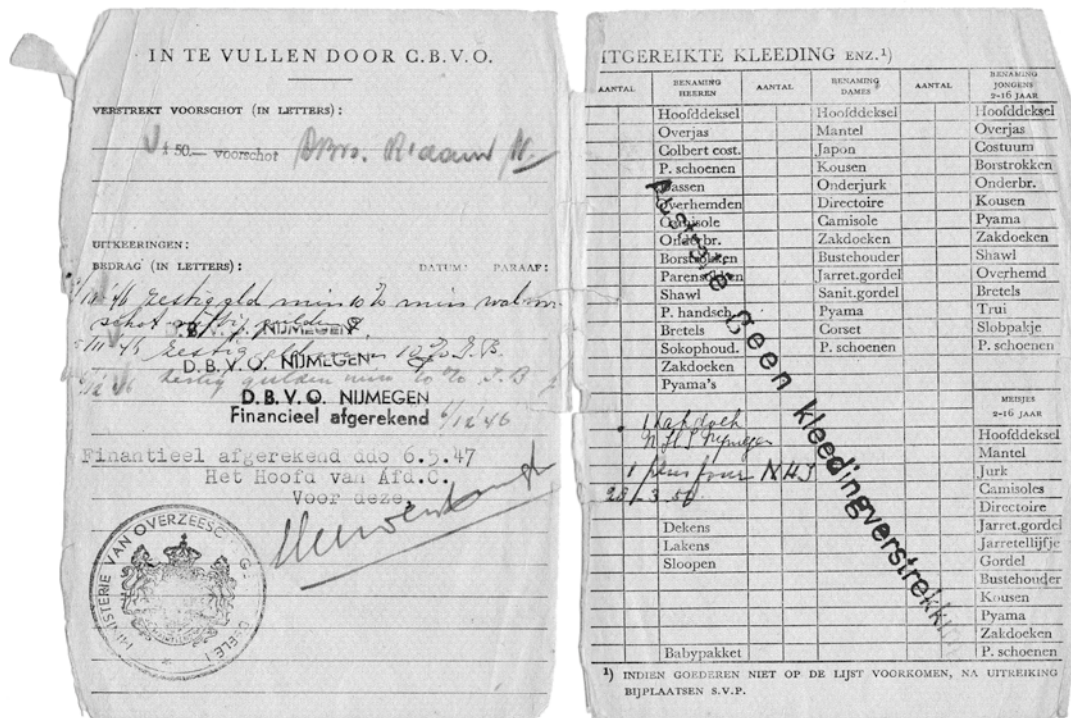 IN TE VULLEN DOOR C.B.V.O.
VERSTREKT VOORSCHOT (IN LETTERS):
f 50.— voorschot
UITKEERINGEN:
BEDRAG (IN LETTERS): DATUM: PARAAF:
zestig gld min 10 % min
schot vijftig gulden
D.B.V.O. NIJMEGEN
D.B.V.O. NIJMEGEN
zestig gulden min 10 %
D.B.V.O. NIJMEGEN
Financieel afgerekend 6/12 46
Finantieel afgerekend ddo 6.5.47
Het Hoofd van Afd.C.
Voor deze,
MINISTERIE VAN OVERZEESCHE
ITGEREIKTE KLEEDING ENZ.¹)
AANTAL BENAMING HEEREN AANTAL BENAMING DAMES AANTAL BENAMING JONGENS 2-16 JAAR
Hoofddeksel Hoofddeksel Hoofddeksel
Overjas Mantel Overjas
Colbert cost. Japon Costuum
P. schoenen Kousen Borstrokken
Dassen Onderjurk Onderbr.
Overhemden Directoire Kousen
Camisole Camisole Pyama
Onderbr. Zakdoeken Zakdoeken
Borstrokken Bustehouder Shawl
Paren sokken Jarret.gordel Overhemd
Shawl Sanit.gordel Bretels
P. handsch. Pyama Trui
Bretels Corset Slobpakje
Sokophoud. P. schoenen P. schoenen
Zakdoeken
Pyama's
MEISJES
2-16 JAAR
Hoofddeksel
Mantel
Jurk
Camisoles
Directoire
Dekens Jarret.gordel
Lakens Jarretellijfje
Sloopen Gordel
Bustehouder
Kousen
Pyama
Zakdoeken
Babypakket P. schoenen
geen kleedingverstrekkin
¹) INDIEN GOEDEREN NIET OP DE LIJST VOORKOMEN, NA UITREIKING
BIJPLAATSEN S.V.P.